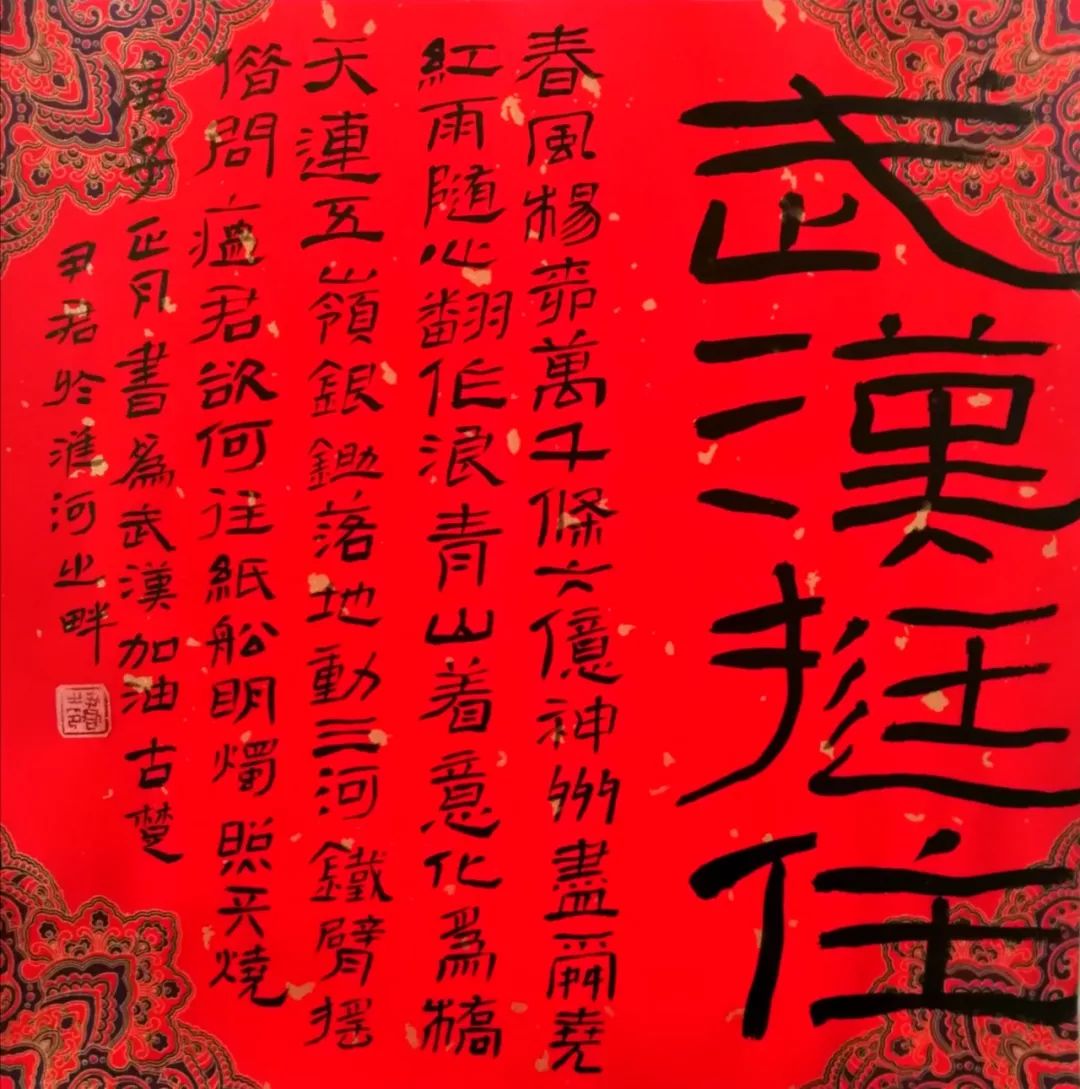 武漢挺住
春風楊柳萬千條六億神州盡舜堯
紅雨随心翻作浪青山着意化為橋
天連五嶺銀鋤落地動三河鐵臂摇
借問瘟君欲何往紙船明燭照天燒
庚子正月書為武漢加油古楚
尹君於淮河之畔